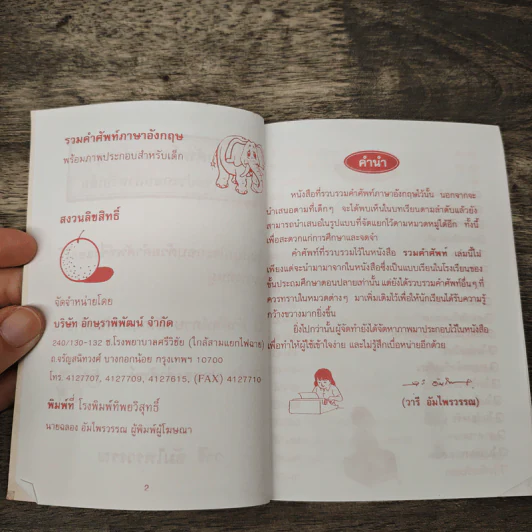 รวมคำศัพท์ภาษาอังกฤษ
พร้อมภาพประกอบสำหรับเด็ก
สงวนลิขสิทธิ์
จัดจำหน่ายโดย
บริษัท อักษราพิพัฒน์ จำกัด
240/130-132 ซ.โรงพยาบาลศรีวิชัย (ใกล้สามแยกไฟฉาย)
ถ.จรัญสนิทวงศ์ บางกอกน้อย กรุงเทพฯ 10700
โทร. 4127707, 4127709, 4127615, (FAX) 4127710
พิมพ์ที่ โรงพิมพ์ทิพยวิสุทธิ์
นายฉลอง อัมไพรวรรณ ผู้พิมพ์ผู้โฆษณา
2
คำนำ
หนังสือที่รวบรวมคำศัพท์ภาษาอังกฤษไว้นั้น นอกจากจะ
นำเสนอตามที่เด็กๆ จะได้พบเห็นในบทเรียนตามลำดับแล้วยัง
สามารถนำเสนอในรูปแบบที่จัดแยกไว้ตามหมวดหมู่ได้อีก ทั้งนี้
เพื่อสะดวกแก่การศึกษาและจดจำ
คำศัพท์ที่รวบรวมไว้ในหนังสือ รวมคำศัพท์ เล่มนี้ไม่
เพียงแต่จะนำมาจากในหนังสือซึ่งเป็นแบบเรียนในโรงเรียนของ
ชั้นประถมศึกษาตอนปลายเท่านั้น แต่ยังได้รวบรวมคำศัพท์อื่นๆ ที่
ควรทราบในหมวดต่างๆ มาเพิ่มเติมไว้เพื่อให้นักเรียนได้รับความรู้
กว้างขวางมากยิ่งขึ้น
ยิ่งไปกว่านั้นผู้จัดทำยังได้จัดหาภาพมาประกอบไว้ในหนังสือ
เพื่อทำให้ผู้ใช้เข้าใจง่าย และไม่รู้สึกเบื่อหน่ายอีกด้วย
(วารี อัมไพรวรรณ)